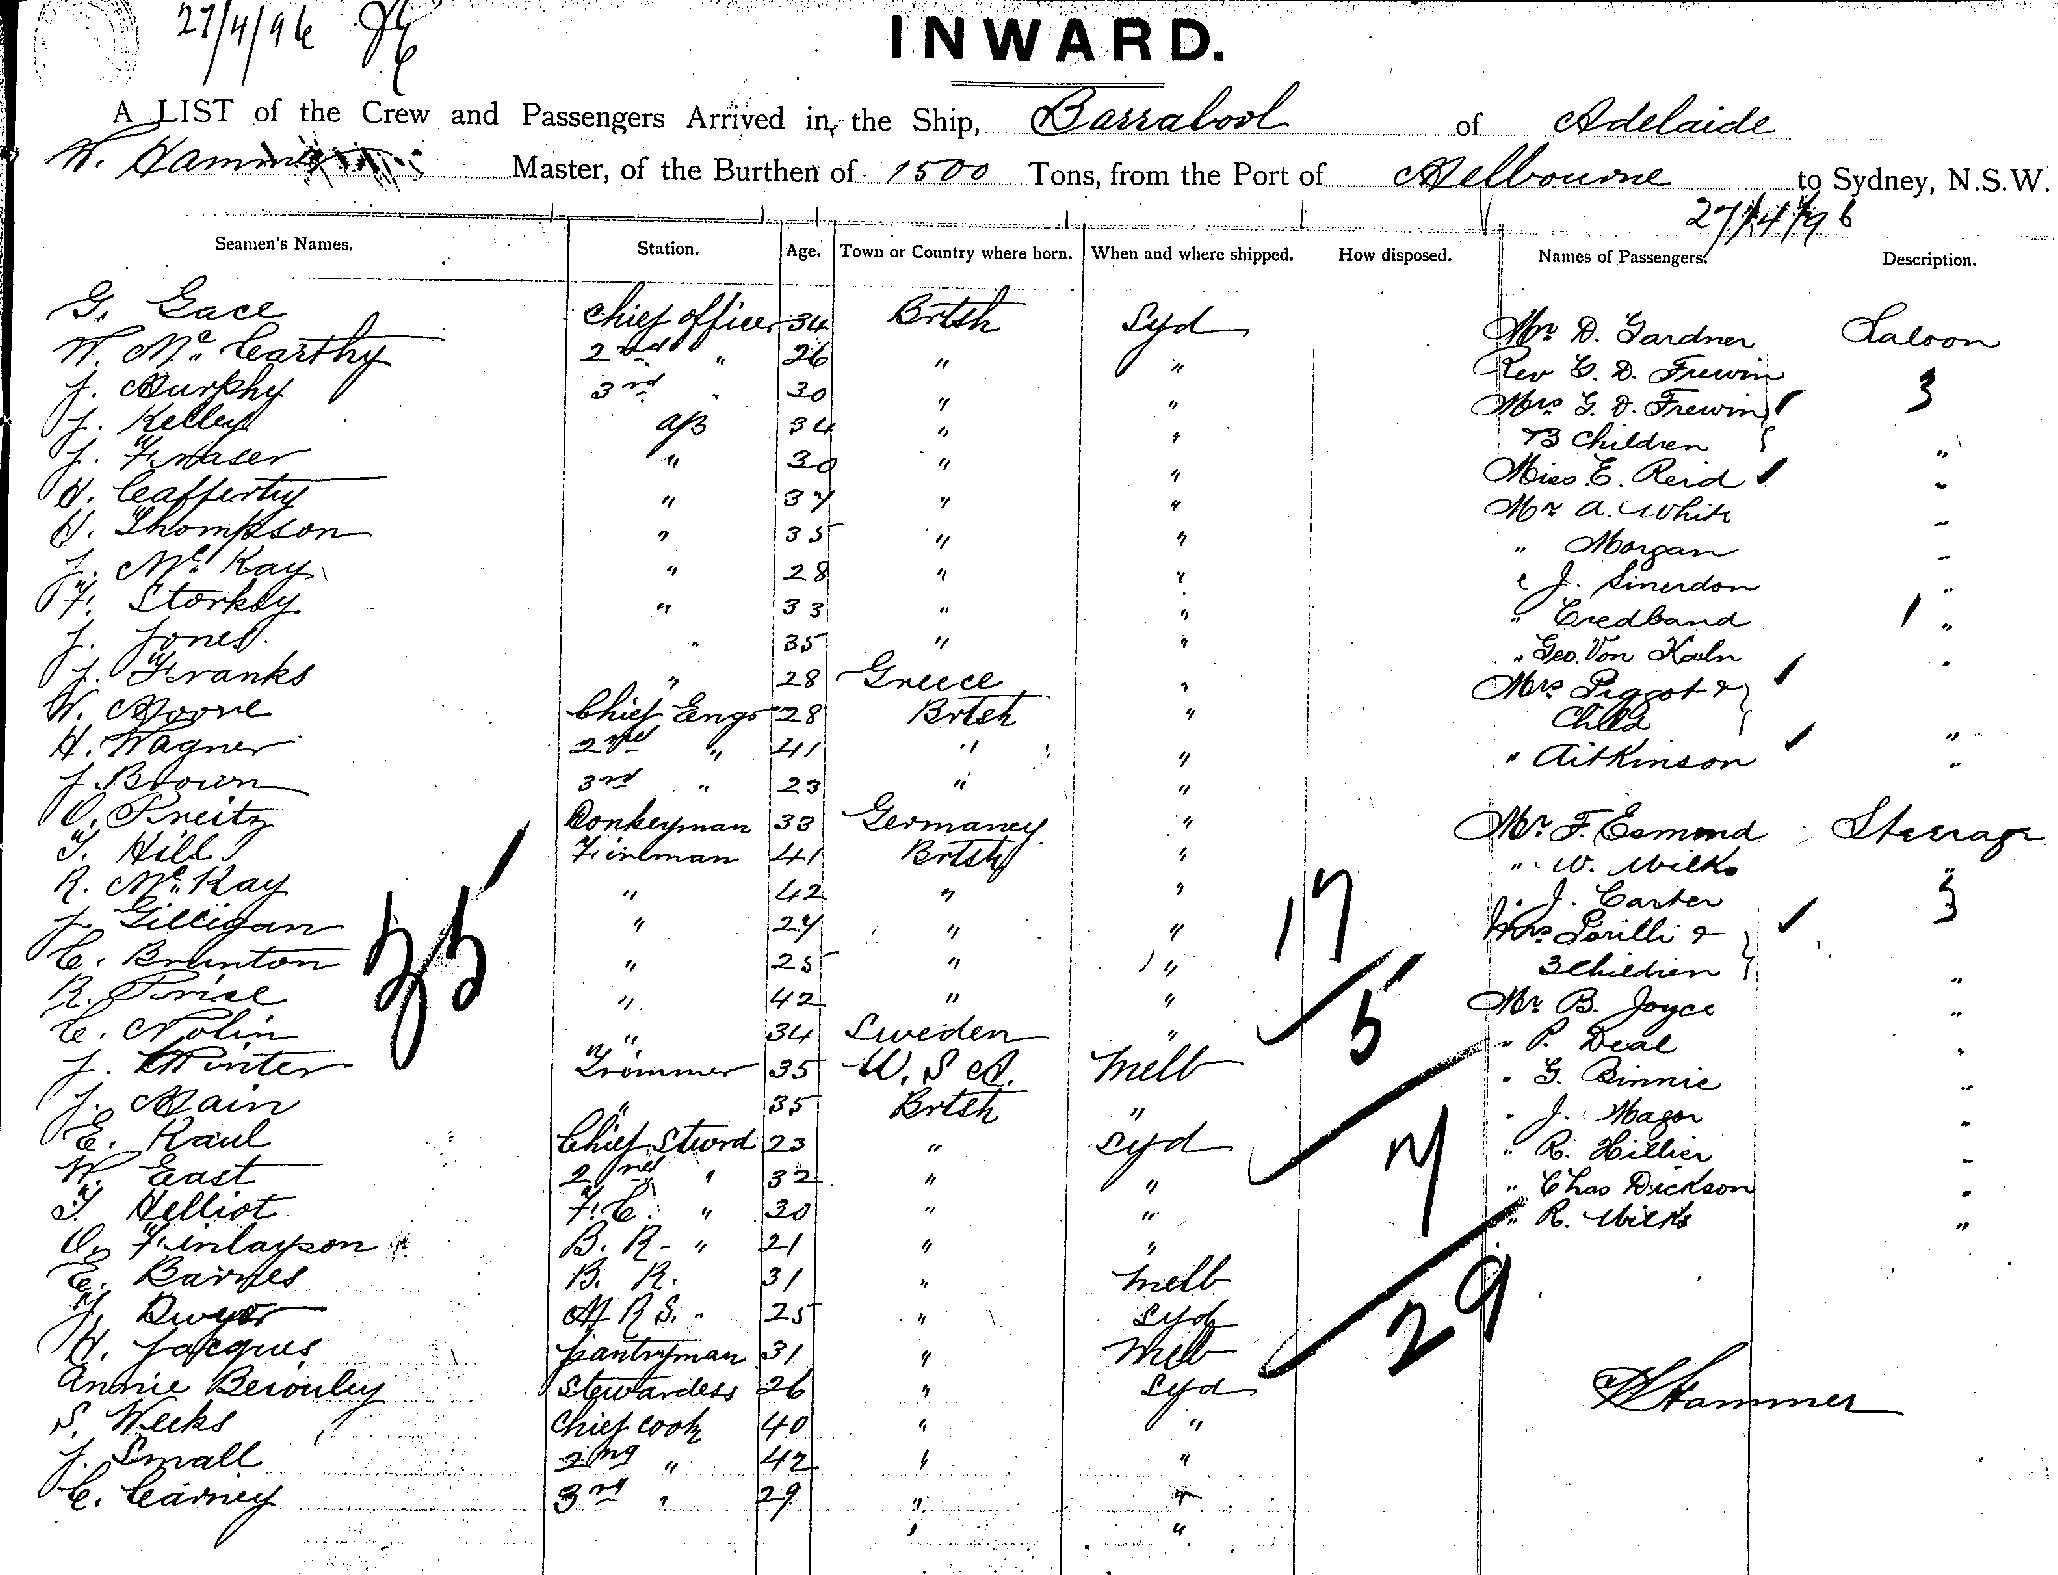 27/4/96
INWARD.
A LIST of the Crew and Passengers Arrived in the Ship, Barrabool of Adelaide
W. Hammer Master, of the Burthen of 1500 Tons, from the Port of Melbourne to Sydney, N.S.W.
27/4/96
Seamen's Names. Station. Age. Town or Country where born. When and where shipped. How disposed. Names of Passengers. Description.
G. Gace Chief officer 34 Brtsh Syd Mr D. Gardner Saloon
W. McCarthy 2nd " 26 " " Rev G. D. Frewin
J. Murphy 3rd " 30 " " Mrs G. D. Frewin 3
J. Kelley AB 34 " " & 3 Children "
J. Fraser " 30 " " Miss E. Reid "
H. Cafferty " 37 " " Mr A. White "
H. Thompson " 35 " " " Morgan "
J. McKay " 28 " " " J. Sinerdon "
F. Storkey " 33 " " " Credband 1 "
J. Jones " 35 " " " Geo. Von Kaln "
J. Franks " 28 Greece " Mrs Piggot &
W. Moore Chief Engr 28 Brtsh " Child "
H. Wagner 2nd " 41 " " " Aitkinson "
J. Brown 3rd " 23 " "
O. Preitz Donkeyman 33 Germaney " Mr F. Esmond Steerage
T. Hill Fireman 41 Brtsh " " W. Wilks "
R. McKay " 42 " " " J. Carter 3
J. Gilligan " 27 " " Mrs Perilli &
C. Brunton " 25 " " 3 Children "
R. Prise " 42 " " Mr B. Joyce "
C. Nolin " 34 Sweden " " P. Deal "
J. Winter Trimmer 35 U.S.A. Melb " G. Binnie "
J. Main " 35 Brtsh " " J. Magor "
E. Kaul Chief Stwrd 23 " Syd " R. Hillier "
W. East 2nd " 32 " " " Chas Dickson "
T. Helliot F.C. " 30 " " " R. Wilks "
O. Finlayson B.R. " 21 " "
E. Barnes B. R. 31 " Melb
J. Dwyer M R S. " 25 " Syd
H. Jacques pantryman 31 " Melb
Annie Bewley Stewardess 26 " Syd
S. Weeks Chief cook 40 " "
J. Small 2nd " 42 " "
C. Carney 3rd " 29 " "
" "
35
17
5
7
29
W Hammer